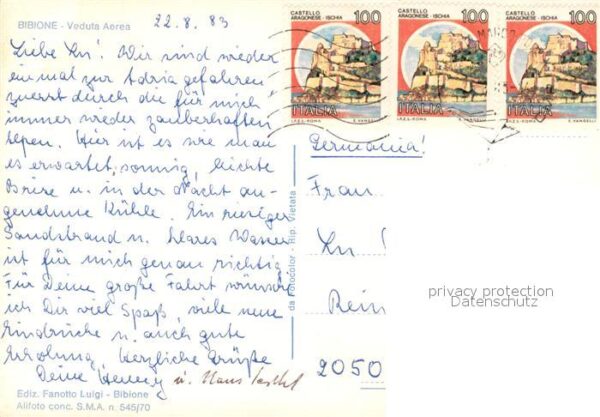 BIBIONE - Veduta Aerea
22.8.83
Liebe Ln! Wir sind wieder
einmal zur Adria gefahren
zuerst durch die für mich
immer wieder zauberhaften
Alpen. Hier ist es wie man
es erwartet, sonnig, leichte
Brise u. in der Nacht an-
genehme Kühle. Ein riesiger
Sandstrand u. klares Wasser
ist für mich genau richtig.
Für Deine große Fahrt wünsch
ich Dir viel Spaß, viele neue
Eindrücke u. auch gute
Erholung. Herzliche Grüße
Deine u. Hans
Ediz. Fanotto Luigi - Bibione
Alifoto conc. S.M.A. n. 545/70
da Fotocolor - Rip. Vietata
CASTELLO ARAGONESE - ISCHIA 100
ITALIA
I.P.Z.S. - ROMA E. VANGELLI
CASTELLO ARAGONESE - ISCHIA 100
ITALIA
I.P.Z.S. - ROMA E. VANGELLI
CASTELLO ARAGONESE - ISCHIA 100
ITALIA
I.P.Z.S. - ROMA E. VANGELLI
Germania!
Frau
Ln
Rein
2050
privacy protection
Datenschutz